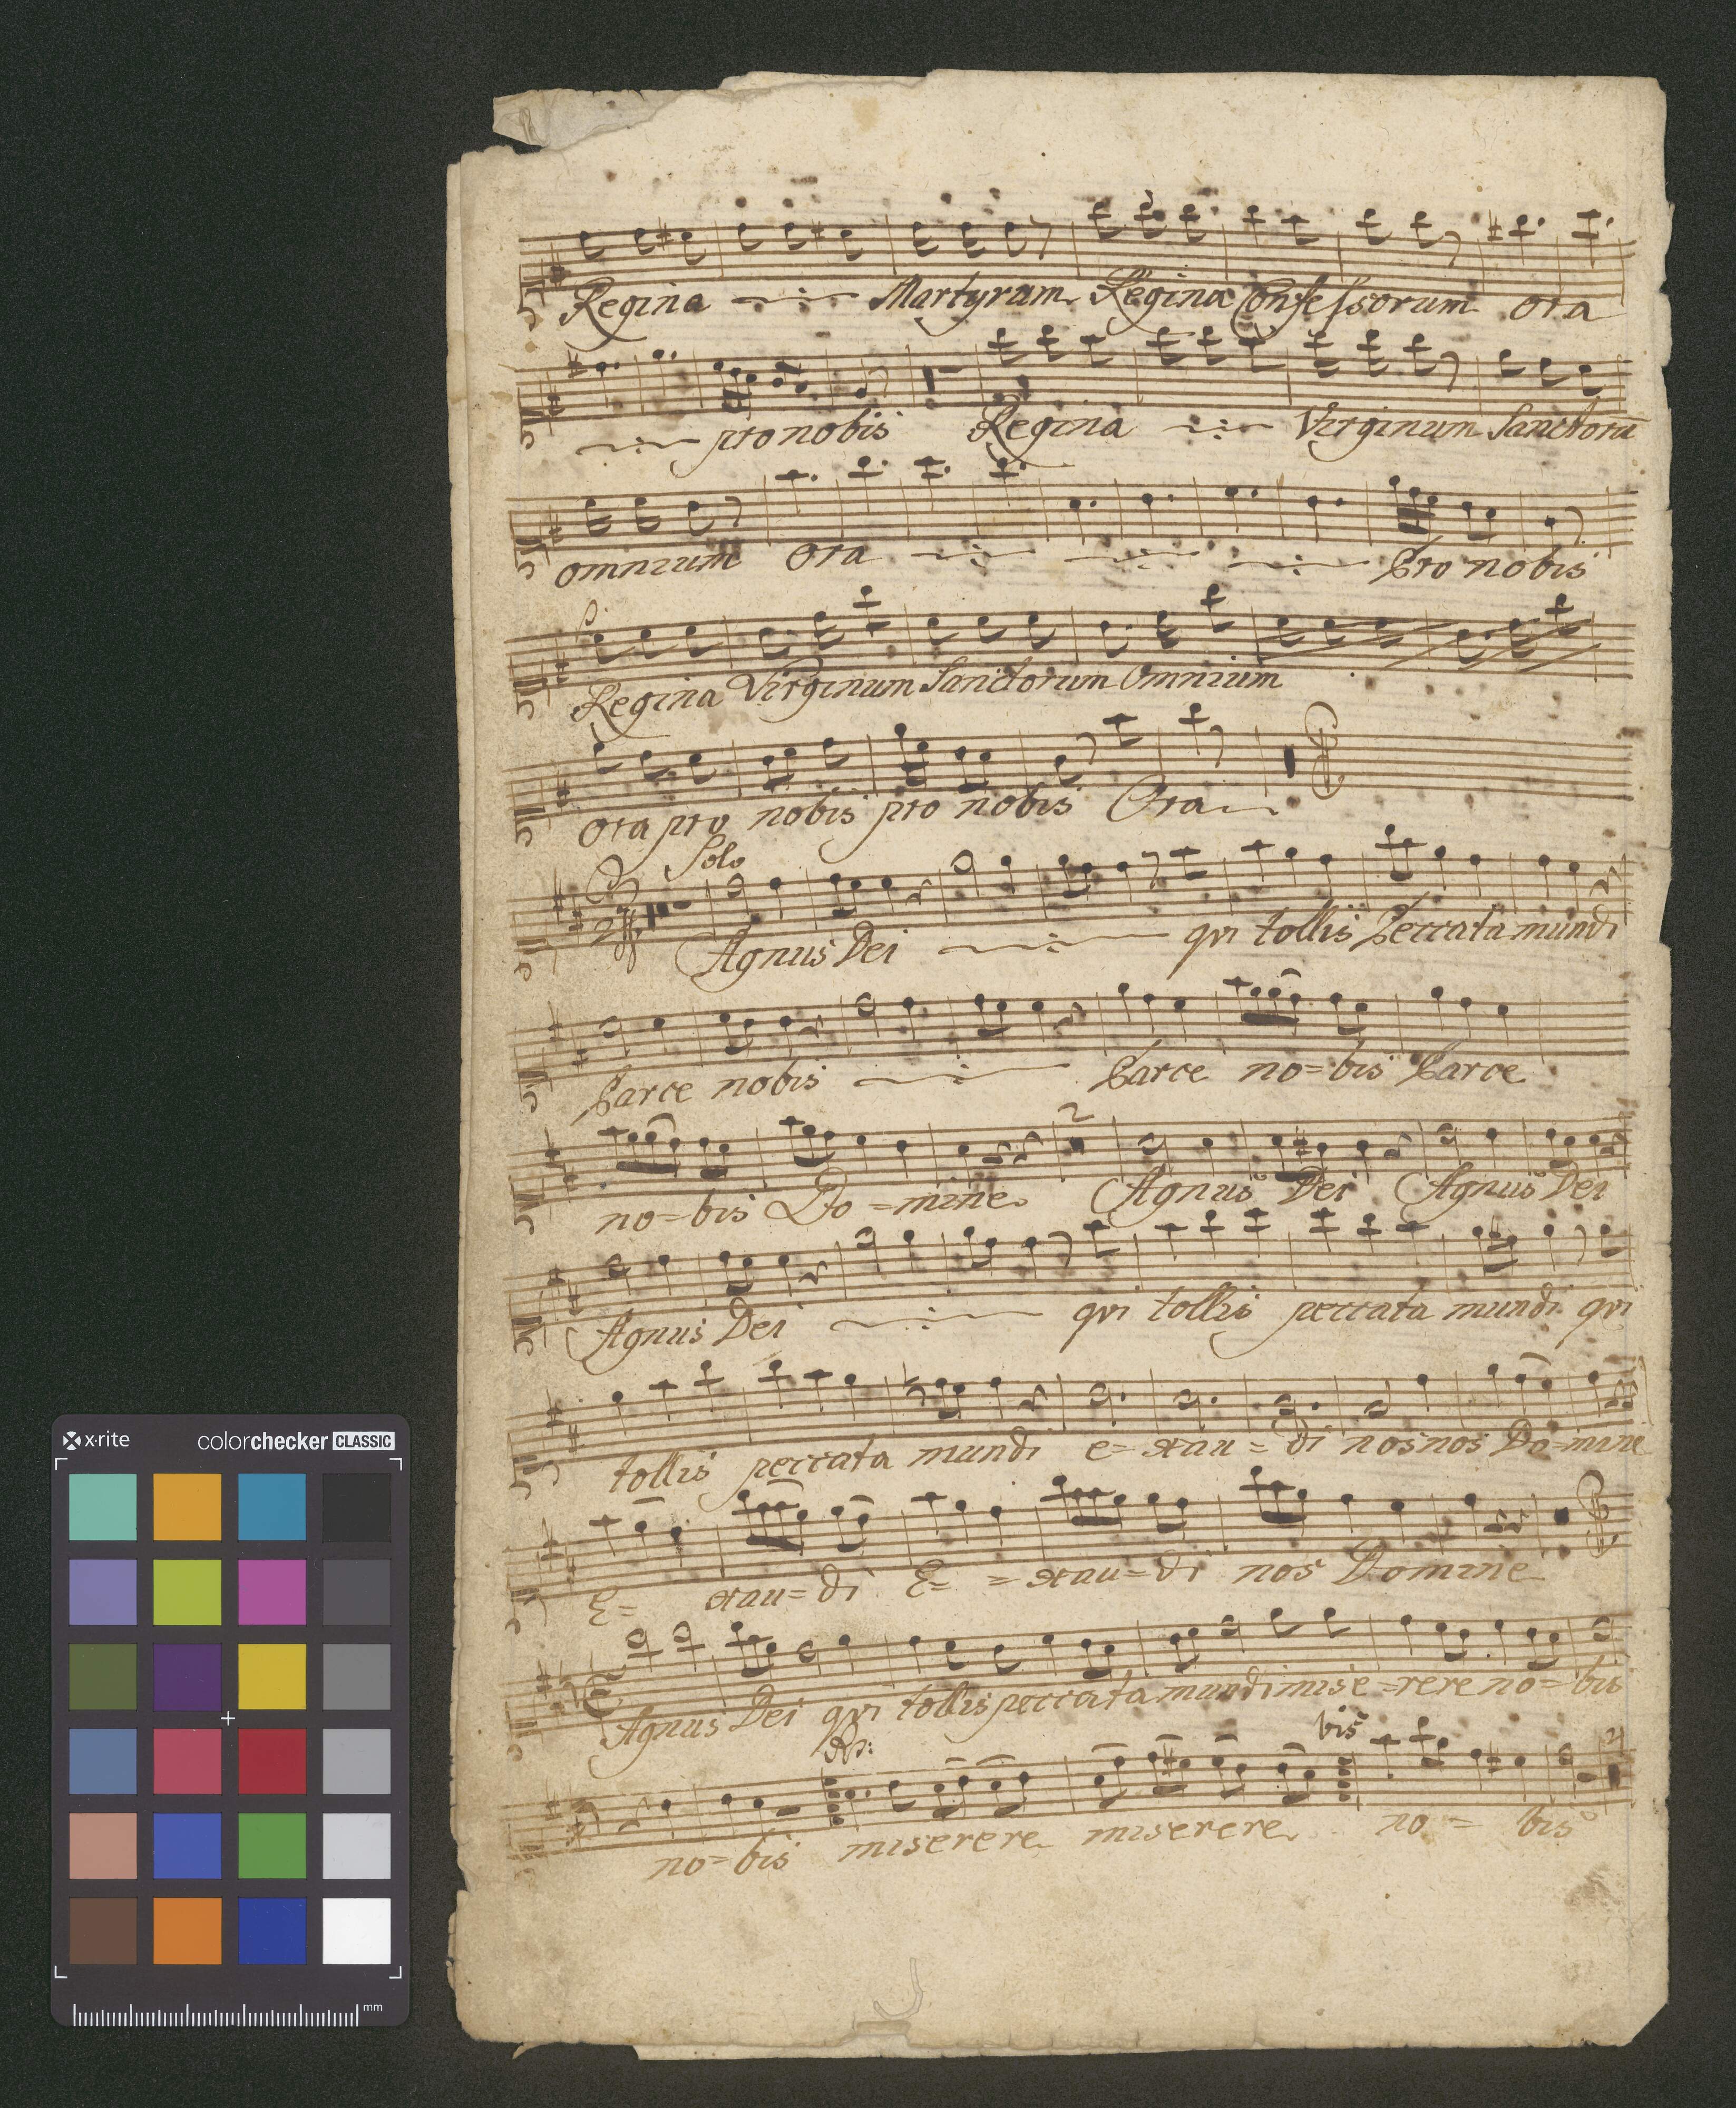 Regina Martyrum Regina Confessorum ora
pro nobis Regina Virginum Sanctorū
omnium Ora Pro nobis
Regina Virginum Sanctorum Omnium
Ora pro nobis pro nobis Ora
Solo
Agnus Dei qui tollis Peccata mundi
Parce nobis Parce no=bis Parce
2
no=bis Do=mine Agnus Dei Agnus Dei
Agnus Dei qui tollis peccata mundi qui
tollis peccata mundi e=xau=di nos nos Do=mine
E= xau=di E= =xau=di nos Domine
Agnus Dei qui tollis peccata mundi mise=rere no=bis
bis
no=bis miserere miserere no= bis
x·rite colorchecker CLASSIC
mm